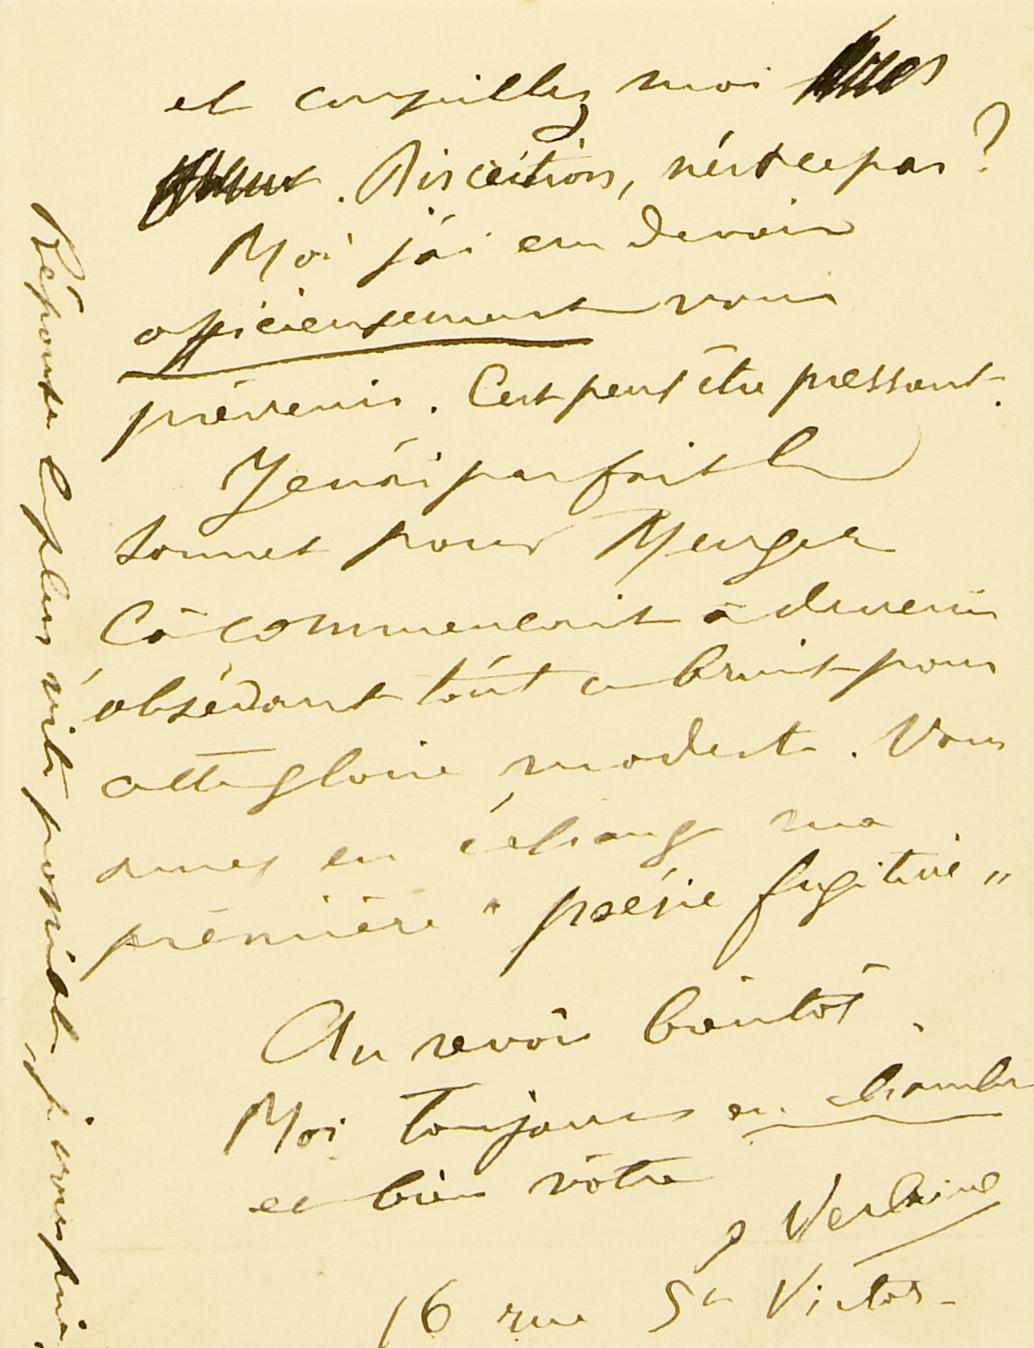 et conseillez moi
. Discrétion, n'est ce pas ?
Moi j'ai cru devoir
officieusement vous
prévenir. C'est peut être pressant.
Je n'ai pas fait le
sonnet pour Murger
Cà commençait à devenir
obsédant tout ce bruit pour
cette gloire modeste. Vous
aurez en échange ma
première " poésie fugitive "
Au revoir bientôt.
Moi toujours en chambre
et bien vôtre
P Verlaine
16 rue St Victor
Réponse le plus vite possible, je vous prie,